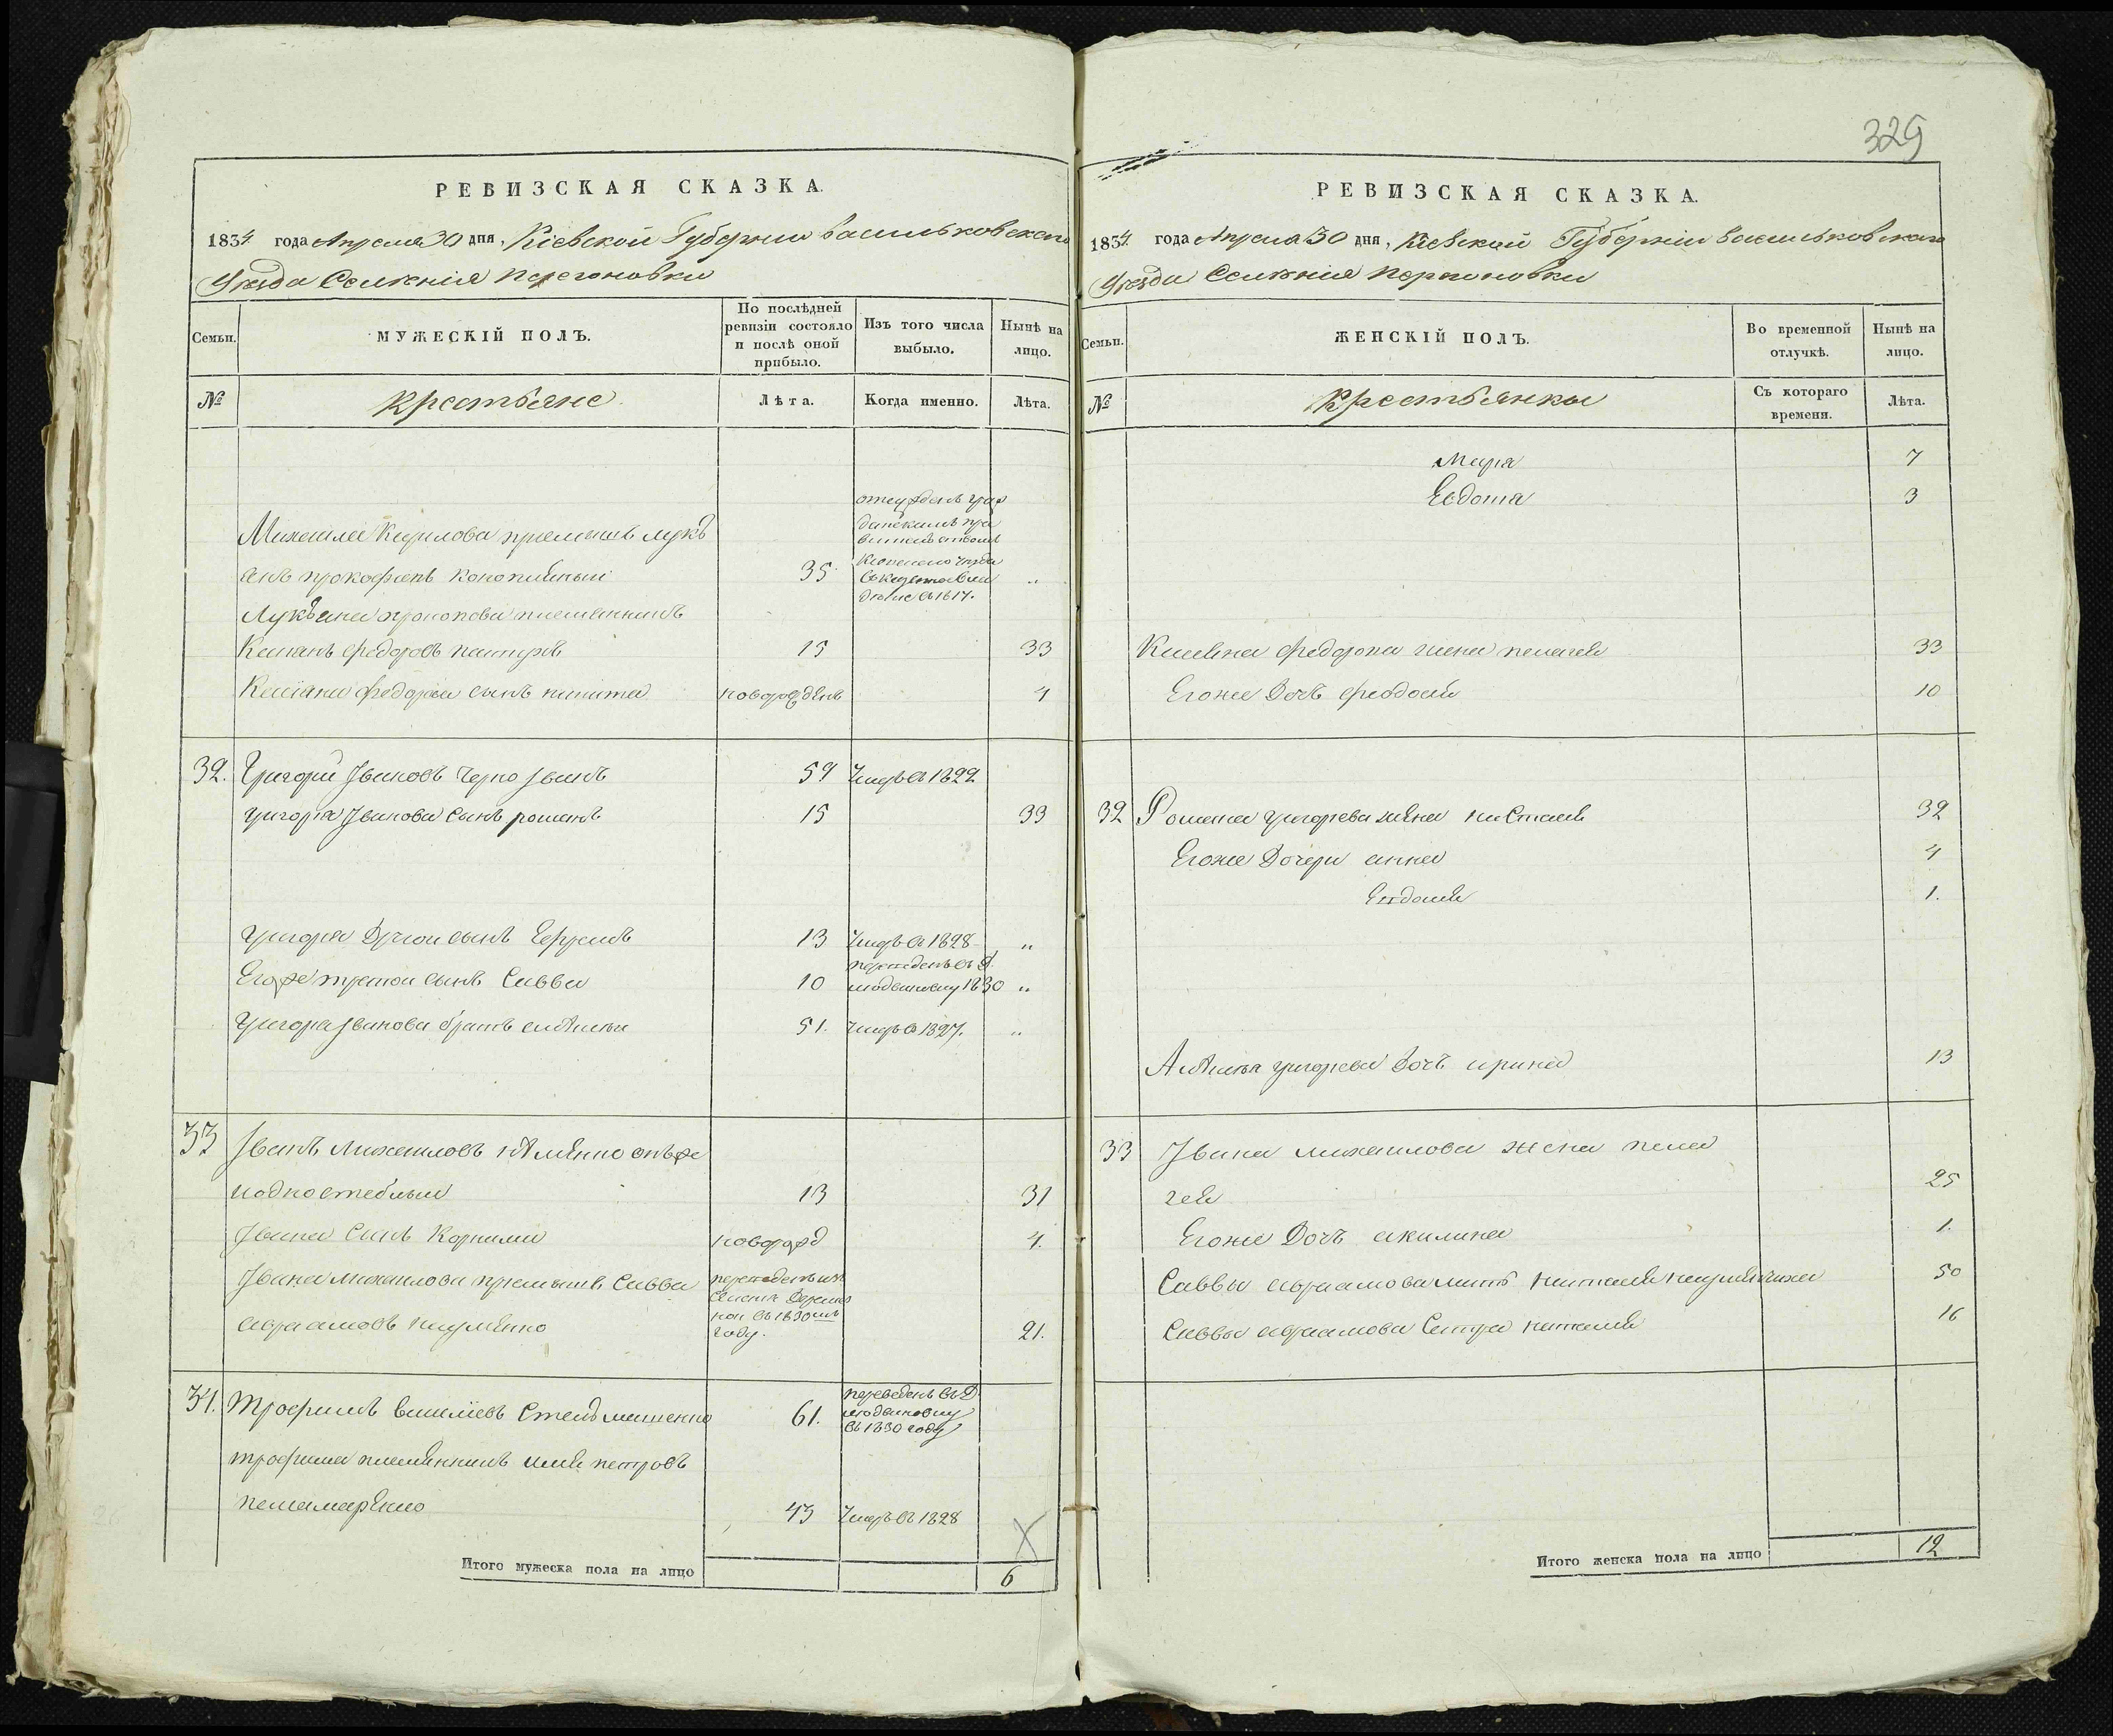 329
РЕВИЗСКАЯ СКАЗКА.
1834 года Апреля 30 дня, Кіевской Губерніи Васильковскаго
Уезда Селенія Перегоновки
Семьи.
МУЖЕСКІЙ ПОЛЪ.
По послѣдней ревизіи состояло и послѣ оной прибыло.
Изъ того числа выбыло.
Нынѣ на лицо.
№
Крестьяне
Лѣта.
Когда именно.
Лѣта.
Михаила Кирилова приемышъ лукъ
янъ прокофіевъ 35 „
в1817.
Лукъяна прокопова племянникъ
Касіанъ федоровъ 15 33
Касіана федорова сынъ никита новорожденъ 4
32. Григорій Івановъ Черно Іванъ 59 Умеръ в 1822
григорія Іванова сынъ романъ 15 33
григорія Другои сынъ Ефремъ 13 Умеръ в 1828 „
Егоже третои сынъ Савва 10 переведенъ въ Д. 1830 „
Григорія Іванова братъ 51. умеръ в 1827. „
33 Іванъ Михаиловъ онъже
13 31
Івана Сынъ Корнили новорожд 4.
Івана михаилова приемышъ Савва переведенъ изъ
авраамовъ науменко въ 1830мъ году. 21.
34. Трофимъ василіевъ Стельмашенко 61. переведенъ въ Д. въ 1830 году
трофима племянникъ илія петровъ
43 Умеръ въ 1828
Итого мужеска пола на лицо 6
РЕВИЗСКАЯ СКАЗКА.
1834 года Апреля 30 дня, Кіевской Губерніи Васильковскаго
Уезда Селенія Перегоновки
Семьи.
ЖЕНСКІЙ ПОЛЪ.
Во временной отлучкѣ.
Нынѣ на лицо.
№
Крестьянки
Съ котораго времени.
Лѣта.
Марія 7
Евдокія 3
Касіяна федорова жена пелагея 33
Егоже Дочъ феодосія 10
32 Романа григорева жена настасія 32
Егоже Дочери анна 4
Евдокія 1.
григорева Дочъ ирина 13
33 Івана михаилова жена пела
гея 25
Егоже Дочъ акилина 1.
Саввы авраамова мать наталія 50
Саввы авраамова Сестра наталія 16
Итого женска пола на лицо 12